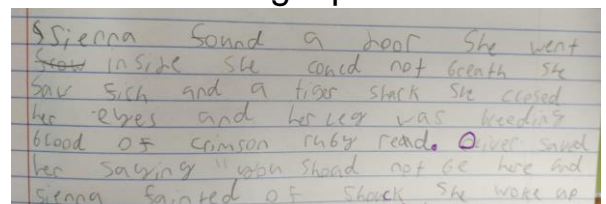 Sienna found a door She went
inside She coucd not breath she
Saw fish and a tiger shark She ccosed
her eyes and her leg was breeding
blood of crimson ruby read. Oliver saved
her saying "you shoad not be here and
sienna fainted of shouck she woke up